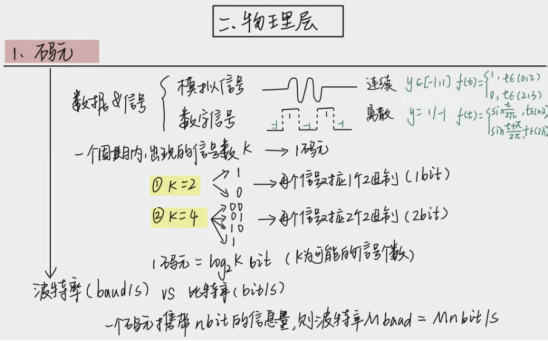 二.物理层
1. 码元
数据&信号
模拟信号 连续 y∈[-1,1] f(t)={1, t∈(0,2)
0, t∈(2,3)
数字信号 离散 y=1/-1 f(t)={sin
sin
一个周期内,出现的信号数K → 1码元
① K=2 1 → 每个信号对应1个2进制 (1bit)
0
② K=4 00 → 每个信号对应2个2进制 (2bit)
01
10
1
1码元 = log₂K bit (K为可能的信号个数)
波特率(baud/s) vs 比特率(bit/s)
一个码元携带nbit的信息量,则波特率M baud = Mn bit/s